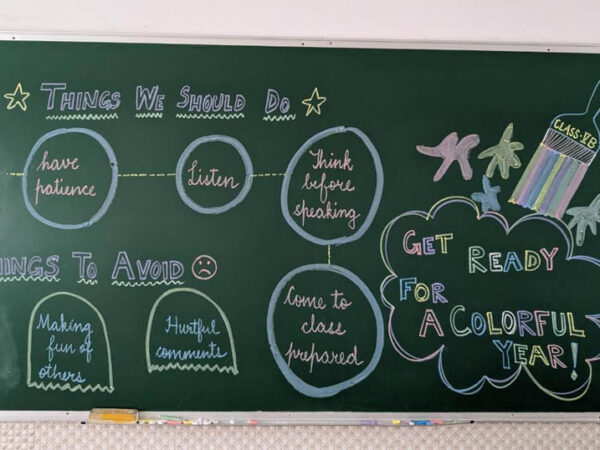 THINGS WE SHOULD DO
have
patience
Listen
Think
before
speaking
Come to
class
prepared
TO AVOID
Making
fun of
others
Hurtful
comments
CLASS-VB
GET READY
FOR
A COLORFUL
YEAR!